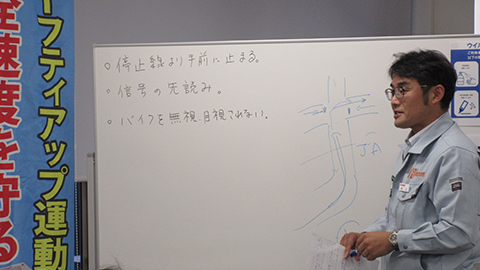 セーフティアップ運動
全速度を守る
。停止線より手前に止まる。
。信号の先読み。
。バイクを無視、目視できない。
JA